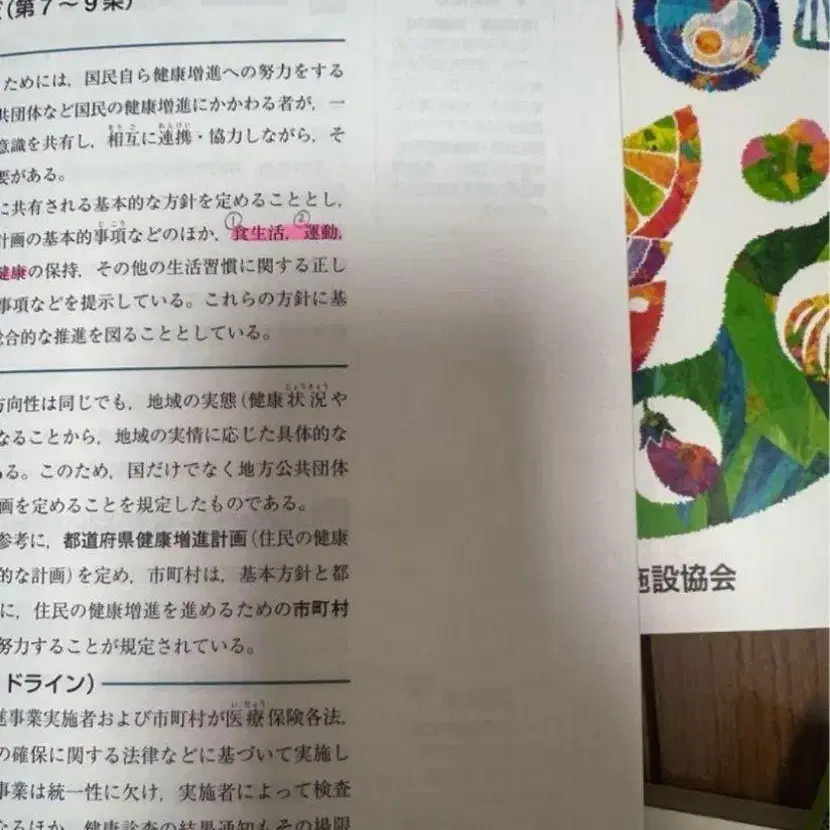 (第7～9条)
ためには，国民自ら健康増進への努力をする
共団体など国民の健康増進にかかわる者が，一
意識を共有し，相互に連携・協力しながら，そ
要がある。
に共有される基本的な方針を定めることとし，
計画の基本的事項などのほか，①食生活，②運動，
健康の保持，その他の生活習慣に関する正し
事項などを提示している。これらの方針に基
総合的な推進を図ることとしている。
方向性は同じでも，地域の実態(健康状況や
なることから，地域の実情に応じた具体的な
ある。このため，国だけでなく地方公共団体
画を定めることを規定したものである。
参考に，都道府県健康増進計画(住民の健康
的な計画)を定め，市町村は，基本方針と都
に，住民の健康増進を進めるための市町村
努力することが規定されている。
ドライン)
進事業実施者および市町村が医療保険各法，
の確保に関する法律などに基づいて実施し
事業は統一性に欠け，実施者によって検査
なるほか，健康診査の結果通知もその場限
施設協会